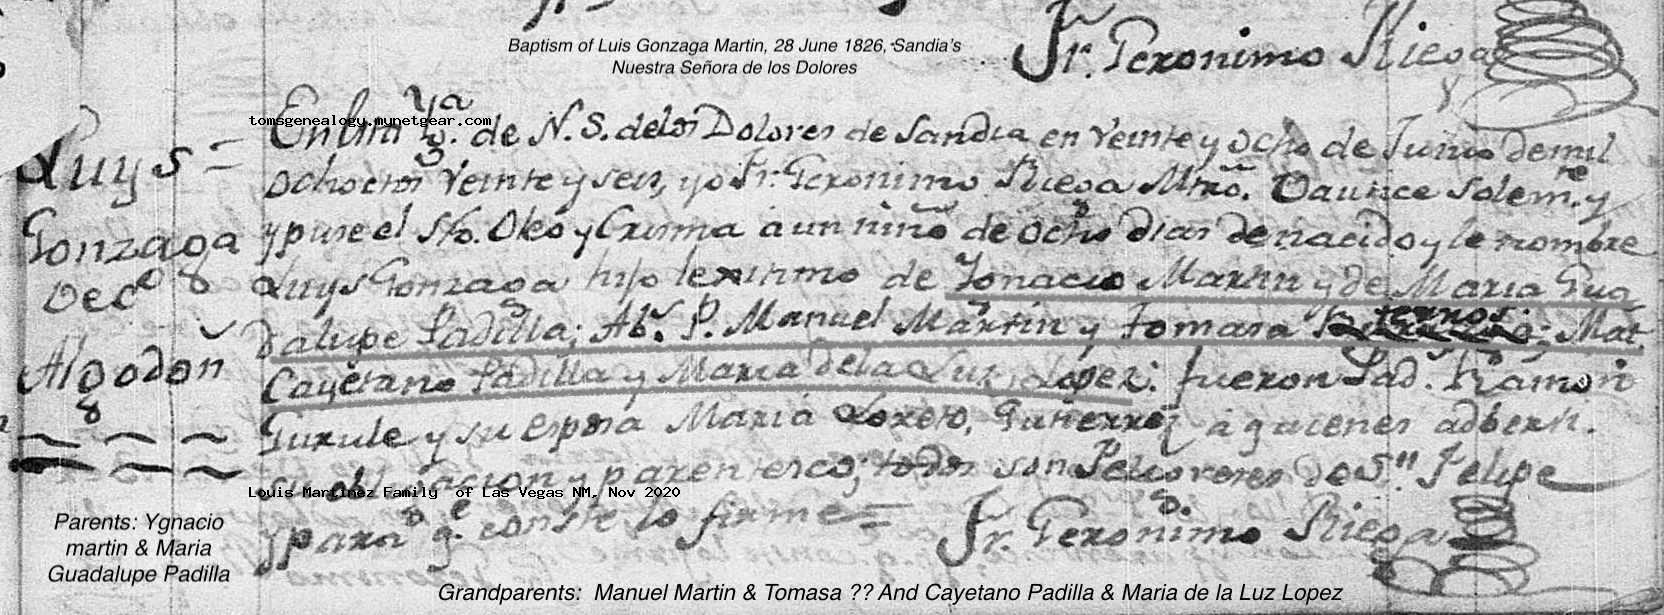 Baptism of Luis Gonzaga Martin, 28 June 1826, Sandia's
Nuestra Señora de los Dolores
Fr. Geronimo Riega
Ya
tomsgenealogy.munetgear.com
En de N. S. de los Dolores de Sandia en veinte y ocho de Junio de mil
ochoctos veinte y seis, yo Fr. Geronimo Riega Mtrõ. Bautice Solem.te y
y puse el Sto. Oleo y Crisma a un niño de ocho dias de nacido y le nombre
Luys Gonzaga hijo lexitimo de Ignacio Martin y de Maria Gua
dalupe Padilla; Ab.s P. Manuel Martin y Tomasa Mat.
Cayetano Padilla y Maria de la Luz Lopez: fueron Pad.s Ramon
Gurule y su esposa Maria Loreto, Gutierrez a quienes adberti.
su obligacion y parentesco; todos son de Sn Felipe
y para q.e conste lo firme =
Fr. Geronimo Riega
Luys =
Gonzaga
de
Algodon
Louis Martinez Family of Las Vegas NM, Nov 2020
Parents: Ygnacio
martin & Maria
Guadalupe Padilla
Grandparents: Manuel Martin & Tomasa ?? And Cayetano Padilla & Maria de la Luz Lopez